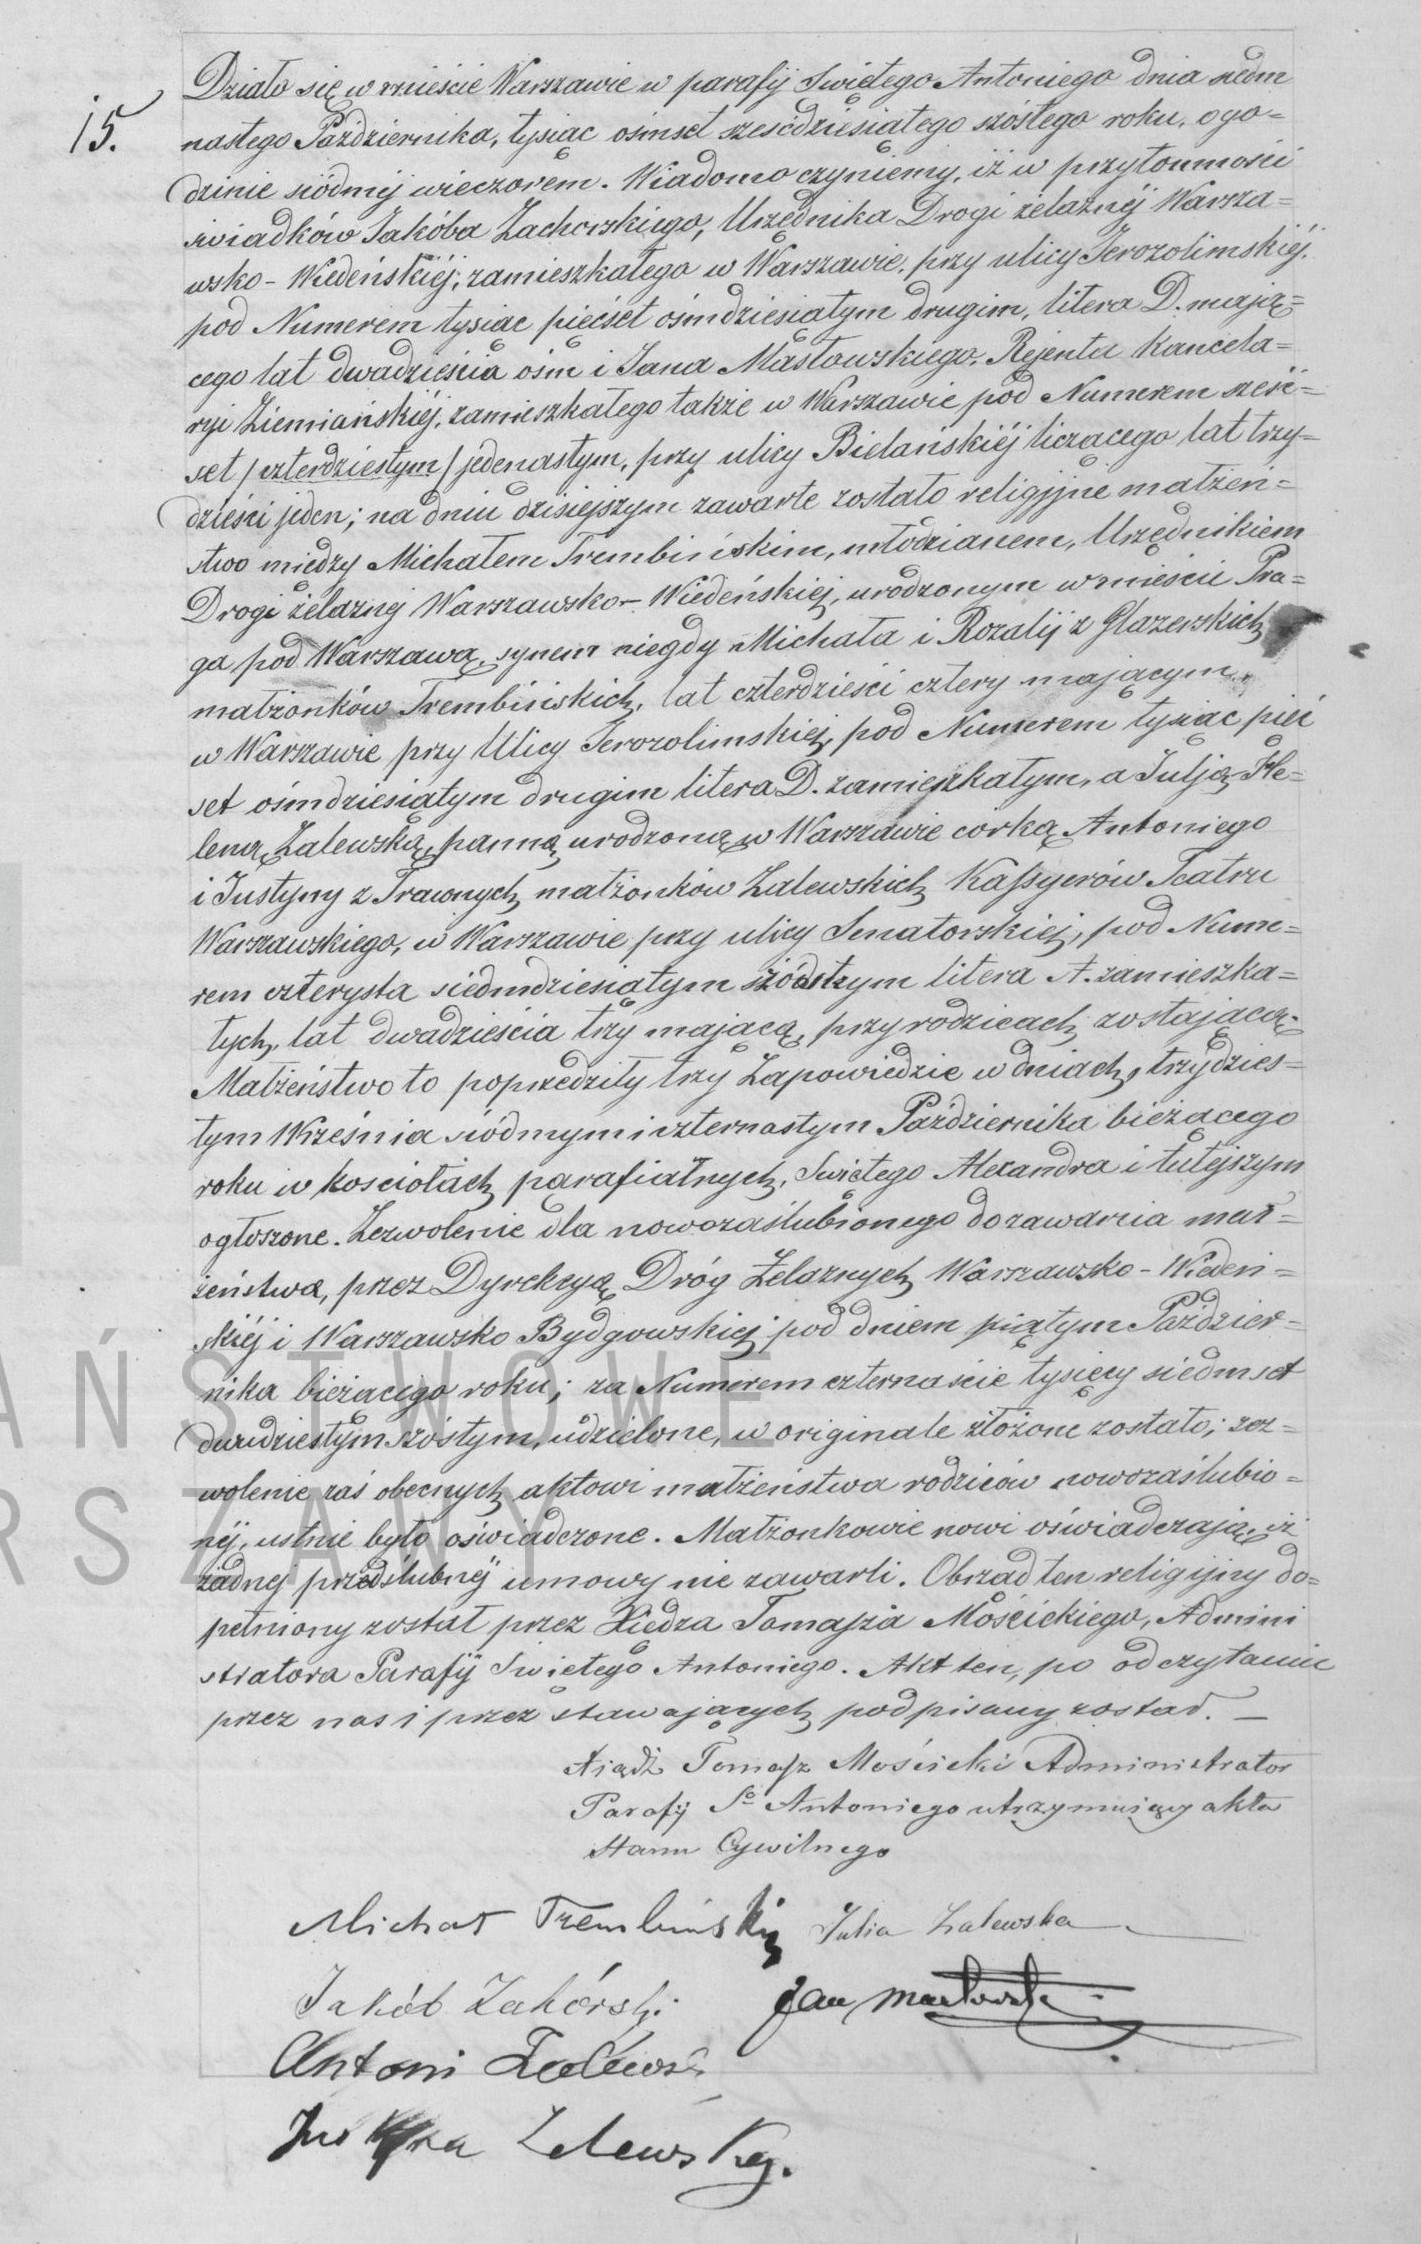 15.
Działo się w mieście Warszawie w parafij Swiętego Antoniego dnia siedm
nastego Października, tysiąc ośmset sześćdziesiątego szóstego roku, ogo=
dzinie siódméj wieczorem. Wiadomo czyniemy, iż w przytomności
swiadków Jakóba Zachorskiego, Urzędnika Drogi żelaznéj Warsza=
wsko-Wiedeńskiéj, zamieszkałego w Warszawie, przy ulicy Jerozolimskiéj,
pod Numerem tysiąc pięćset ośmdziesiątym drugim, litera D. mają=
cego lat dwadzieścia ośm i Jana Masłowskiego, Rejenta Kancela=
ryi Ziemiańskiéj, zamieszkałego także w Warszawie pod Numerem sześć=
set /czterdziestym/ jedenastym, przy ulicy Bielańskiéj liczącego lat trzy=
dzieści jeden; na dniu dzisiejszym zawarte zostało religijne małżeń=
stwo między Michałem Trembińskim, młodzianem, Urzędnikiem
Drogi żelaznej Warszawsko-Wiedeńskiej, urodzonym w mieście Pra=
ga pod Warszawą, synem niegdy Michała i Rozalij z Glazerskich
małżonków Trembińskich, lat czterdzieści cztery mającym,
w Warszawie przy Ulicy Jerozolimskiej, pod Numerem tysiąc pięć
set ośmdziesiątym drugim litera D. zamieszkałym, a Julją He=
leną Zalewską, panną urodzoną w Warszawie corką Antoniego
i Justyny z Trawnych małżonków Zalewskich Kassyerów Teatru
Warszawskiego, w Warszawie przy ulicy Senatorskiej, pod Nume=
rem czterysta siedmdziesiątym szóstym litera A. zamieszka=
łych, lat dwadzieścia trzy mającą, przy rodzicach zostającą.
Małżeństwo to poprzedziły trzy Zapowiedzie w dniach, trzydzies=
tym Września siódmym i czternastym Października bieżacego
roku w kosciołach parafialnych, Swiętego Alexandra i tutejszym
ogłoszone. Zezwolenie dla nowozaślubionego do zawarcia mał=
żeństwa, przez Dyrekcyą Dróg Żelaznych Warszawsko-Wiedeń=
skiéj i Warszawsko Bydgowskiej pod dniem piątym Paździer=
nika bieżącego roku; za Numerem czternaście tysięcy siedmset
dwudziestym szóstym, udzielone, w originale złożone zostało; zez=
wolenie zaś obecnych aktowi małżeństwa rodziców nowozaślubio=
néj, ustnie było oświadczone. Małżonkowie nowi oświadczają, iż
żadnej przedślubnéj umowy nie zawarli. Obrząd ten religijny do=
pełniony został przez Xiedza Tomasza Mościckiego, Admini
stratora Parafij Swiętego Antoniego. Akt ten, po odczytaniu
przez nas i przez stawających podpisany został. —
Xiądz Tomasz Mościcki Administrator
Parafij Sgo Antoniego utrzymujący akta
Stanu Cywilnego
Michał Trembiński Julia Zalewska
Jakób Zahórski Jan Masłowski
Antoni Zalewski
Justyna Zalewska.
AŃSTWOWE
RSZAWY